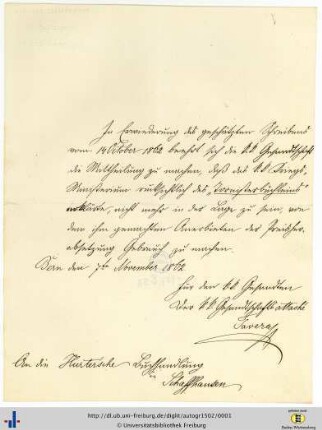 In Erwiederung des geschätzten Schreibens
vom 14 October 1862 beehrt sich die kk Gesandtschaft
die Mittheilung zu machen, daß das kk Kriegs-
Ministerium rücksichtlich des „Tornisterbüchleins“
erklärte, nicht mehr in der Lage zu sein, von
dem ihm gemachten Anerbieten der Preisher-
absetzung Gebrauch zu machen.
Bern den 7ten November 1862
Für den kk Gesandten
Der kk Gesandtschafts attaché
An die Hurtersche Buchhandlung
in Schaffhausen
http://dl.ub.uni-freiburg.de/diglit/autogr1502/0001
© Universitätsbibliothek Freiburg
Baden-Württemberg